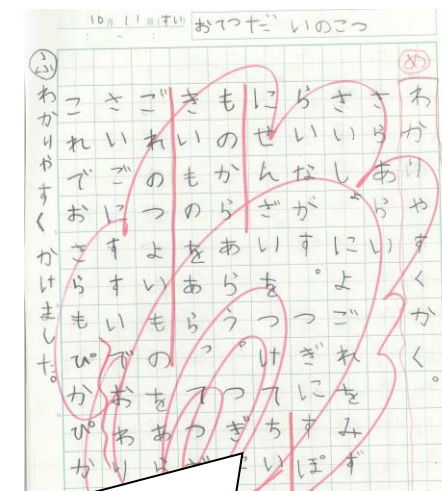 10月11日(すい) おてつだいのこつ
め わかりやすくかく。
さらあらい
さいしょによごれをみず
らいながす。つぎにすぽ
にせんざいをつけてちい
ものからあらう。つぎ
きいものをあらって
ごれのつよいものをあら
さいごにすすいでおわり
これでおさらもぴかぴか
ふ わかりやすくかけました。